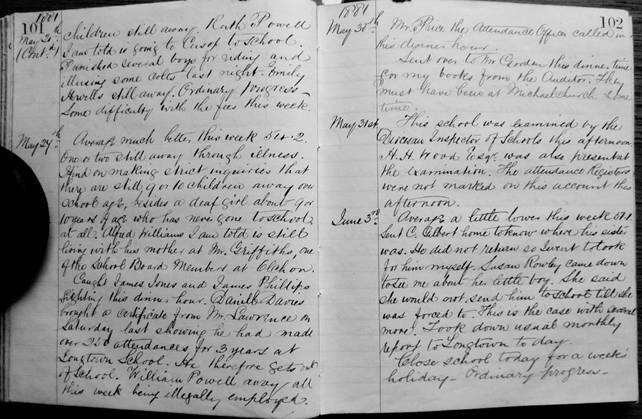 101
1881
May 20th
(Cont.d)
children still away. Ruth Powell
I am told is going to Cusop to School.
Punished several boys for riding and
illusing some colts last night. Emily
Howells still away. Ordinary Progress –
Some difficulty with the fees this week.
May 27th
Average much better this week 54.2.
One or two still away through illness.
Find on making strict inquiries that
there are still 9 or 10 children away over
school age, besides a deaf girl about 9 or
10 years of age who has never gone to school
at all. Alfred Williams I am told is still
living with his mother at Mr. Griffiths, one
of the School Board Members at Llechon.
Caught James Jones and James Phillips
fighting this dinner hour. Daniel Davies
brought a certificate from Mr. Lawrence on
Saturday last showing he had made
over 250 attendances for 3 years at
Longtown School. He therefore gets out
of School. William Powell away all
this week being illegally employed.
1881
102
May 30th
Mr. Price the Attendance Officer called in
this dinner hour.
Sent over to Mr. Gordon this dinner time
for my books from the Auditor. They
must have been at Michaelchurch some
time.
May 31st
This school was examined by the
Diocesan Inspector of Schools this afternoon
H. H. Wood Esqr. was also present at
the examination. The attendance Registers
were not marked on this account this
afternoon.
June 3rd
Average a little lower this week 51.1
Sent C. Gilbert home to know where his sister
was. He did not return so I went to look
for him myself. Susan Rowley came down
to see me about her little boy. She said
she would not send him to school till she
was forced to. This is the case with several
more. Took down usual monthly
report to Longtown to day.
Close school today for a week's
holiday – Ordinary progress –